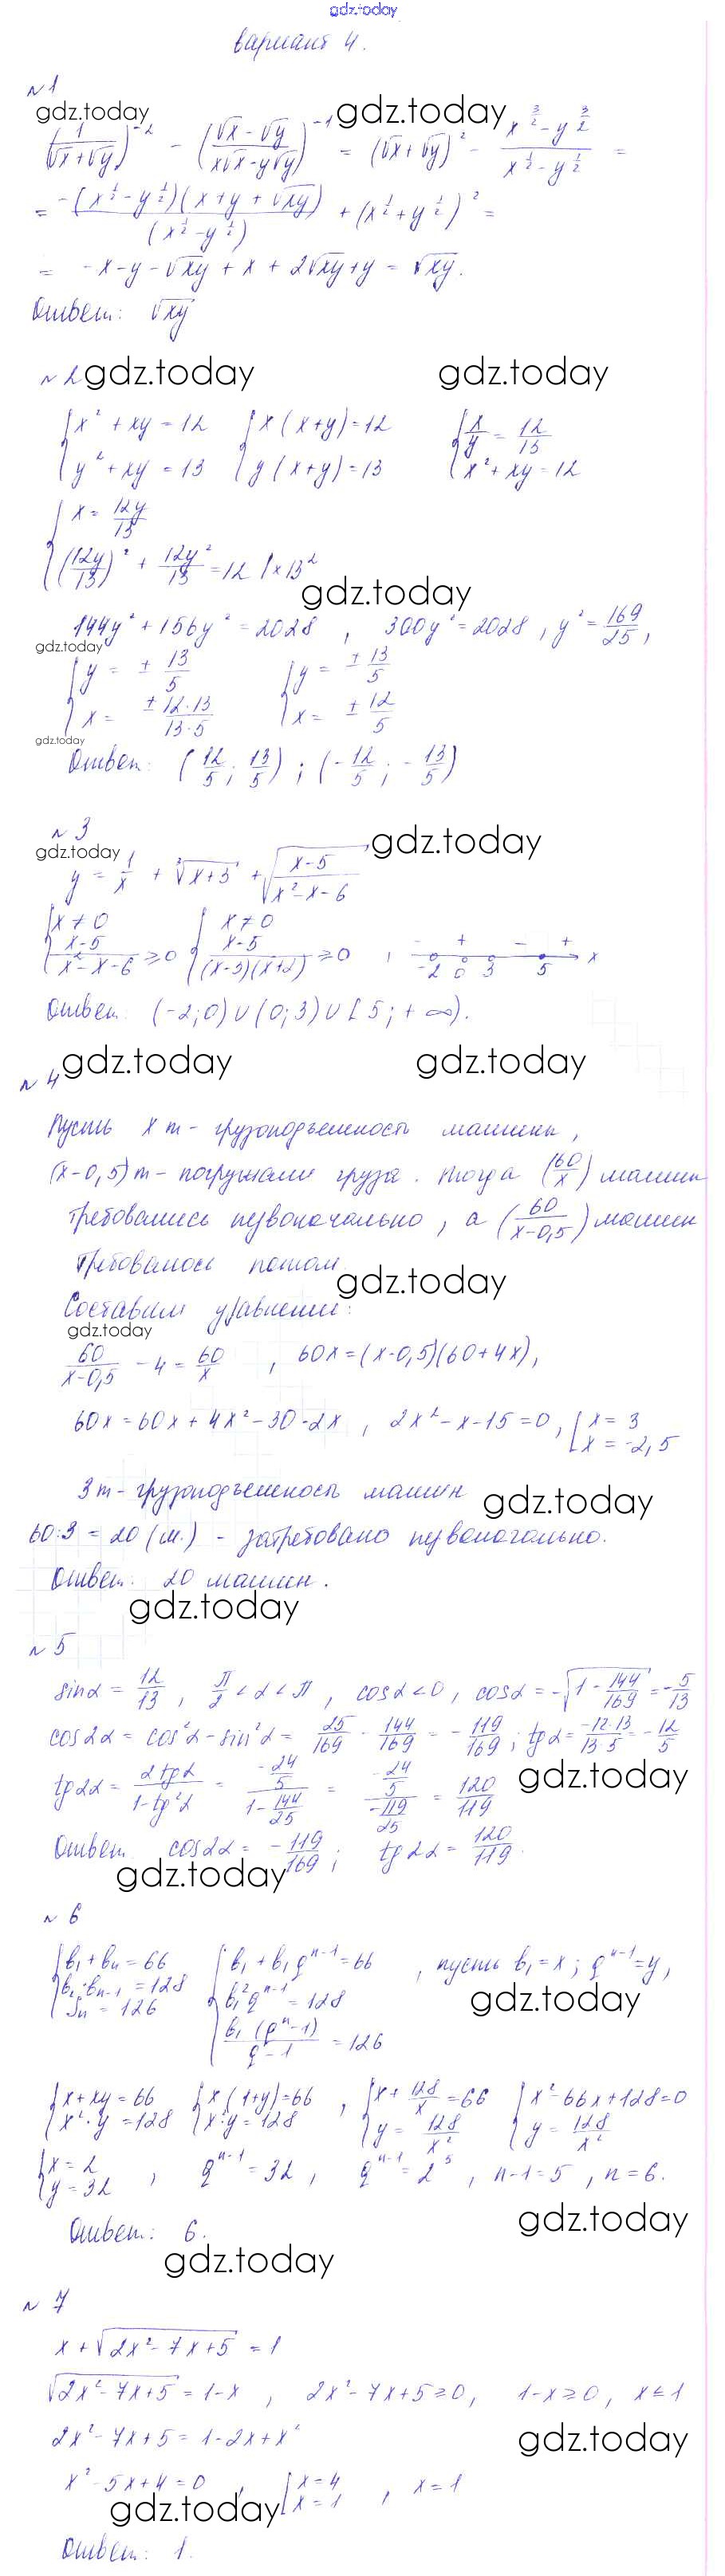 gdz.today
Вариант 4.
№1
gdz.today gdz.today
(1/(√x+√y))^-2 - ((√x-√y)/(x√x-y√y))^-1 = (√x+√y)^2 - (x^(3/2)-y^(3/2))/(x^(1/2)-y^(1/2)) =
= -(x^(1/2)-y^(1/2))(x+y+√xy)/(x^(1/2)-y^(1/2)) + (x^(1/2)+y^(1/2))^2 =
= -x-y-√xy+x+2√xy+y = √xy.
Ответ: √xy
№2 gdz.today gdz.today
{x²+xy=12 {x(x+y)=12 {x/y=12/13
{y²+xy=13 {y(x+y)=13 {x²+xy=12
{x=12y/13
{(12y/13)²+12y²/13=12 |×13²
gdz.today
144y²+156y²=2028, 300y²=2028, y²=169/25,
gdz.today
{y=±13/5 {y=±13/5
{x=±12·13/13·5 {x=±12/5
gdz.today
Ответ: (12/5; 13/5); (-12/5; -13/5)
№3
gdz.today gdz.today
y=1/x+∛x+3+√((x-5)/(x²-x-6)),
{x≠0 {x≠0
{(x-5)/(x²-x-6)≥0 {(x-5)/((x-3)(x+2))≥0, - + - + x
-2 0 3 5
Ответ: (-2;0)∪(0;3)∪[5;+∞).
№4 gdz.today gdz.today
Пусть x т - грузоподъемность машины,
(x-0,5) т - погружали груза. Тогда (60/x) машин
требовались первоначально, а (60/(x-0,5)) машин
требовалось потом.
gdz.today
Составим уравнение:
gdz.today
60/(x-0,5) - 4 = 60/x, 60x=(x-0,5)(60+4x),
60x=60x+4x²-30-2x, 2x²-x-15=0, [x=3
[x=-2,5
3т - грузоподъемность машин
gdz.today
60:3=20 (м.) - затребовано первоначально.
Ответ: 20 машин.
gdz.today
№5
sinα=12/13, π/2<α<π, cosα<0, cosα=-√(1-144/169)=-5/13
cos2α=cos²α-sin²α=25/169-144/169=-119/169; tgα=-12·13/13·5=-12/5
tg2α=2tgα/(1-tg²α)=(-24/5)/(1-144/25)=(-24/5)/(-119/25)=120/119
gdz.today
Ответ cos2α=-119/169; tg2α=120/119.
gdz.today
№6
{b₁+bₙ=66 {b₁+b₁qⁿ⁻¹=66, пусть b₁=x; qⁿ⁻¹=y,
{b₂·bₙ₋₁=128 {b₁²qⁿ⁻¹=128
{Sₙ=126 {b₁(qⁿ-1)/(q-1)=126
gdz.today
{x+xy=66 {x(1+y)=66, {x+128/x=66 {x²-66x+128=0
{x²·y=128 {x²y=128 {y=128/x² {y=128/x²
{x=2, qⁿ⁻¹=32, qⁿ⁻¹=2⁵, n-1=5, n=6.
{y=32
gdz.today
Ответ: 6.
gdz.today
№7
x+√(2x²-7x+5)=1
√(2x²-7x+5)=1-x, 2x²-7x+5≥0, 1-x≥0, x≤1
2x²-7x+5=1-2x+x²
gdz.today
x²-5x+4=0, [x=4, x=1
[x=1
gdz.today
Ответ: 1.